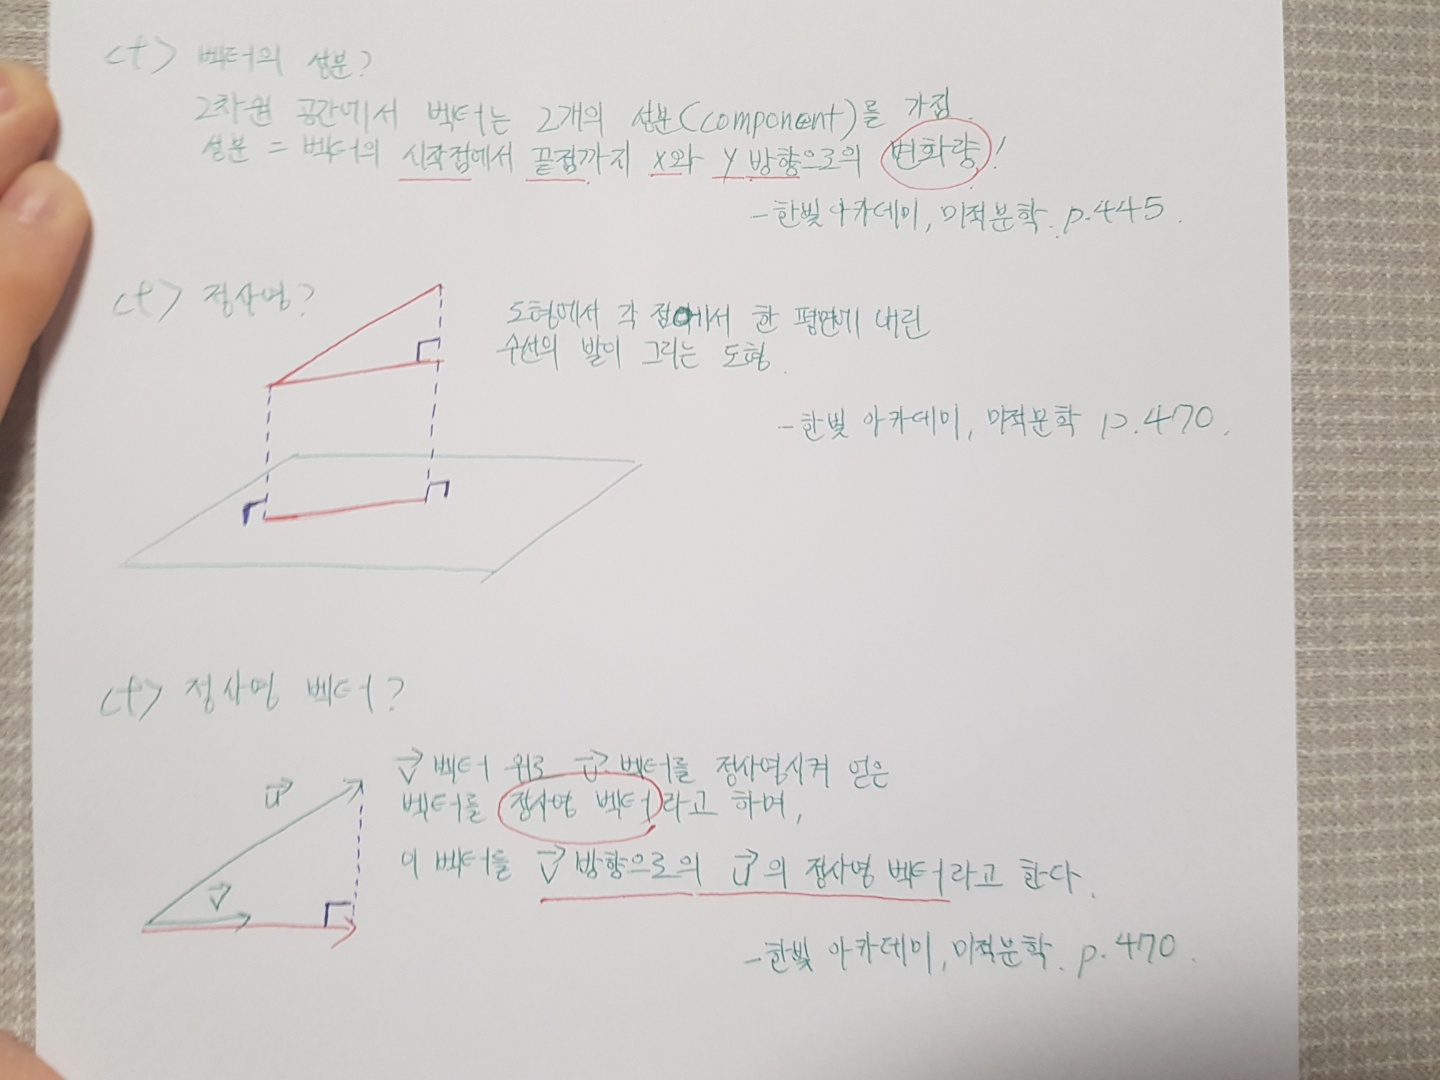 <t> 벡터의 성분?
2차원 공간에서 벡터는 2개의 성분(component)를 가짐.
성분 = 벡터의 시작점에서 끝점까지 x와 y 방향으로의 변화량!
-한빛아카데미, 미적분학. p.445.
<t> 정사영?
도형에서 각 점에서 한 평면에 내린
수선의 발이 그리는 도형.
-한빛 아카데미, 미적분학 p.470.
<t> 정사영 벡터?
v→ 벡터 위로 u→ 벡터를 정사영시켜 얻은
벡터를 정사영 벡터라고 하며,
이 벡터를 v→ 방향으로의 u→의 정사영 벡터라고 한다.
u→
v→
-한빛 아카데미, 미적분학. p.470.